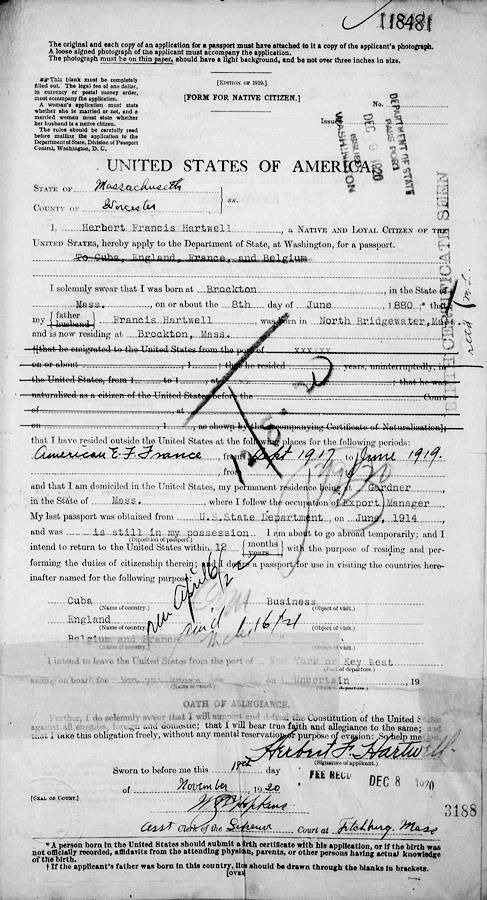 11848
The original and each copy of an application for a passport must have attached to it a copy of the applicant's photograph.
A loose signed photograph of the applicant must accompany the application.
The photograph must be on thin paper, should have a light background, and be not over three inches in size.
This blank must be completely
filled out. The legal fee of one dollar,
in currency or postal money order,
must accompany the application.
A woman's application must state
whether she is married or not, and a
married woman must state whether
her husband is a native citizen.
The rules should be carefully read
before mailing the application to the
Department of State, Division of Passport
Control, Washington, D. C.
[EDITION OF 1919.]
[FORM FOR NATIVE CITIZEN.]
No.
Issued
DEPARTMENT OF STATE
PASSPORT
DEC 9 1920
ISSUED
WASHINGTON
BIRTH CERTIFICATE SEEN
UNITED STATES OF AMERICA.
STATE OF Massachusetts
COUNTY OF Worcester
ss.
I, Herbert Francis Hartwell, a NATIVE AND LOYAL CITIZEN OF THE
UNITED STATES, hereby apply to the Department of State, at Washington, for a passport.
To Cuba, England, France, and Belgium
I solemnly swear that I was born at Brockton, in the State of
Mass., on or about the 8th day of June, 1880; * that
my {father husband} Francis Hartwell was born in North Bridgewater, Mass
and is now residing at Brockton, Mass.
†[that he emigrated to the United States from the port of xxxxxx
on or about , 1 ; that he resided years, uninterruptedly, in
the United States, from 1 to 1 , at ; that he was
naturalized as a citizen of the United States before the Court
of , at
on , 1 , as shown by the accompanying Certificate of Naturalization];
that I have resided outside the United States at the following places for the following periods:
American E. F. France, from Sept 1917 to June 1919.
from
and that I am domiciled in the United States, my permanent residence being at Gardner
in the State of Mass., where I follow the occupation of Export Manager
My last passport was obtained from U.S.State Department on June, 1914
and was is still in my possession I am about to go abroad temporarily; and I
(Disposition of passport.)
intend to return to the United States within 12 {months years} with the purpose of residing and per-
forming the duties of citizenship therein; and I desire a passport for use in visiting the countries here-
inafter named for the following purpose:
Cuba Business
(Name of country.) (Object of visit.)
England "
(Name of country.) (Object of visit.)
Belgium and France "
(Name of country.) (Object of visit.)
I intend to leave the United States from the port of New York or Key West
(Port of departure.)
sailing on board the on Uncertain, 19
(Name of vessel.) (Date of departure.)
OATH OF ALLEGIANCE.
Further, I do solemnly swear that I will support and defend the Constitution of the United States
against all enemies, foreign and domestic; that I will bear true faith and allegiance to the same; and
that I take this obligation freely, without any mental reservation or purpose of evasion: So help me God.
Herbert F. Hartwell
(Signature of applicant.)
Sworn to before me this day
of November, 1920
FEE RECD DEC 8 1920
[SEAL OF COURT.]
Hopkins
3188
Asst Clerk of the Court at Fitchburg, Mass
* A person born in the United States should submit a birth certificate with his application, or if the birth was
not officially recorded, affidavits from the attending physician, parents, or other persons having actual knowledge
of the birth.
† If the applicant's father was born in this country, lines should be drawn through the blanks in brackets.
[OVER]